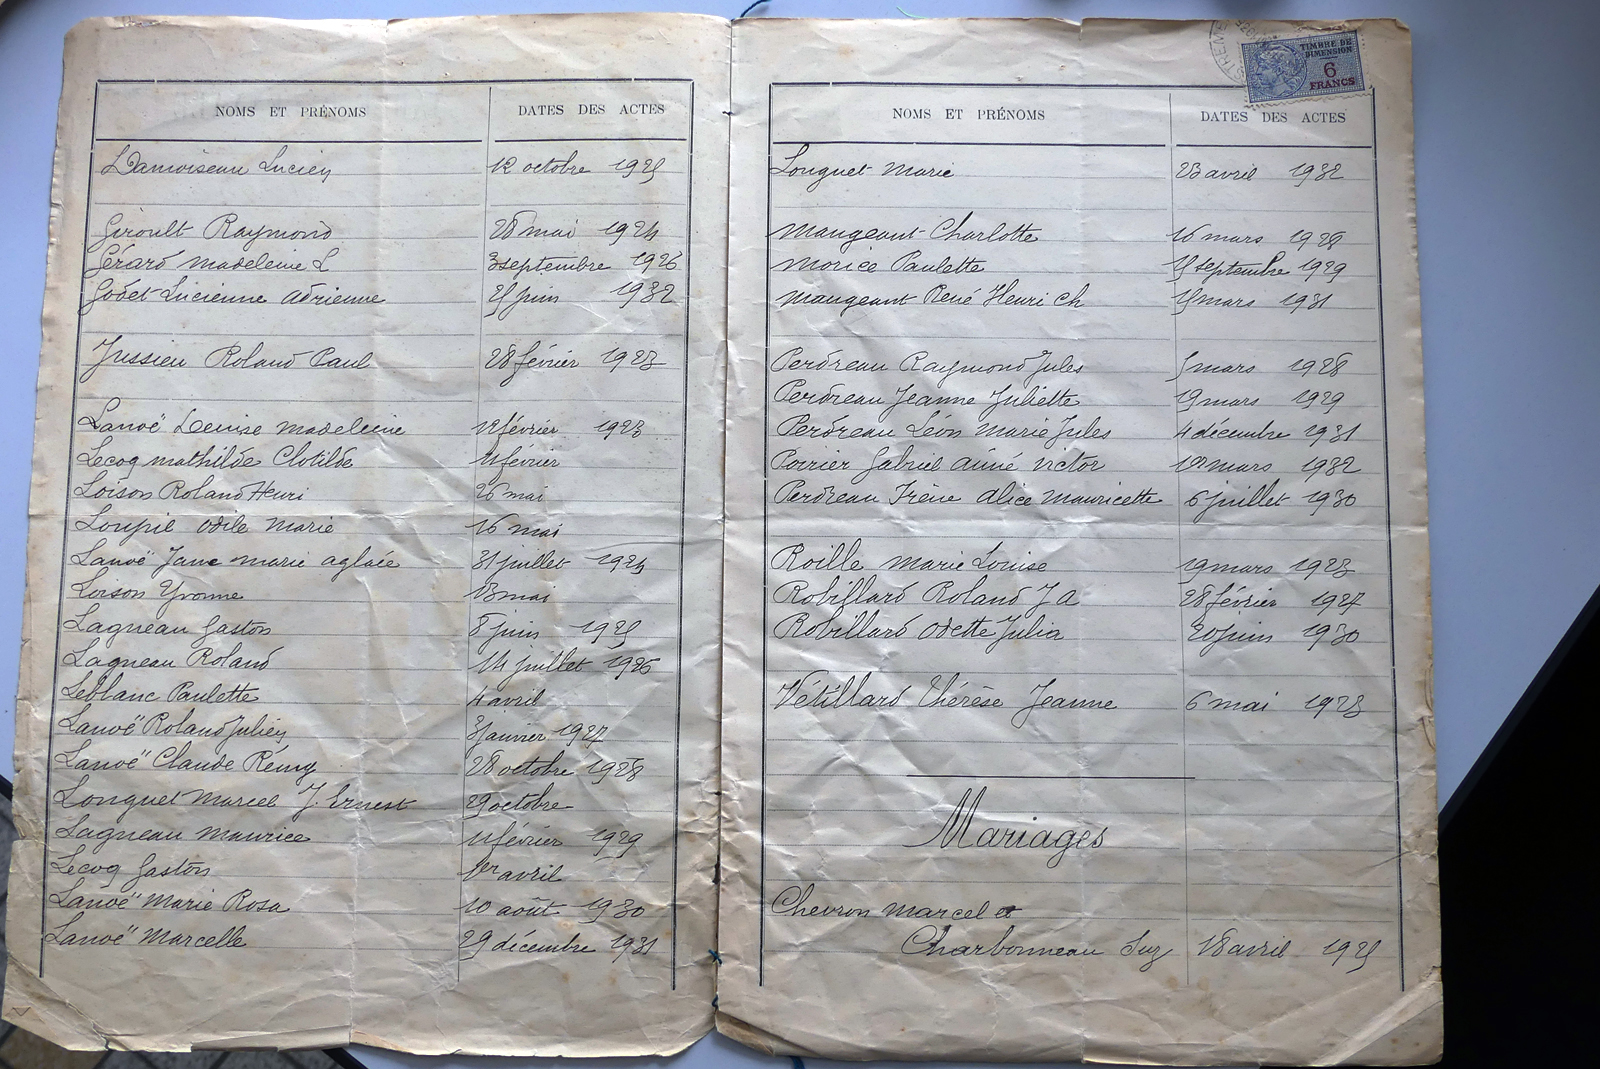 NOMS ET PRÉNOMS DATES DES ACTES
Damoiseau Lucien 12 octobre 1925
Giroult Raymond 28 mai 1924
Gérard Madeleine L 3 septembre 1926
Godet Lucienne Adrienne 25 juin 1932
Jussieu Roland Paul 28 février 1923
Lanoë Denise Madeleine 12 février 1923
Lecoq Mathilde Clotilde février
Loison Roland Henri 26 mai
Loupil Odile Marie 16 mai
Lanoë Jane Marie Aglaée 31 juillet 1924
Loison Yvonne 13 mai
Lagneau Gaston 8 juin 1925
Lagneau Roland 14 juillet 1926
Leblanc Paulette 4 avril
Lanoë Roland Julien 3 janvier 1927
Lanoë Claude Rémy 28 octobre 1928
Longuet Marcel J. Ernest 29 octobre
Lagneau Maurice 11 février 1929
Lecoq Gaston 1er avril
Lanoë Marie Rosa 10 août 1930
Lanoë Marcelle 29 décembre 1931
TIMBRE DE
DIMENSION
6
FRANCS
NOMS ET PRÉNOMS DATES DES ACTES
Longuet Marie 23 avril 1932
Mangeant Charlotte 16 mars 1928
Morice Paulette septembre 1929
Mangeant René Henri Ch 15 mars 1931
Perdreau Raymond Jules 5 mars 1928
Perdreau Jeanne Juliette 19 mars 1929
Perdreau Léon Marie Jules 4 décembre 1931
Poirier Gabriel Aimé Victor mars 1932
Perdreau Irène Alice Mauricette 6 juillet 1930
Roille Marie Louise 19 mars 1923
Robillard Roland J A 28 février 1927
Robillard Odette Julia 20 juin 1930
Vétillard Thérèse Jeanne 6 mai 1923
Mariages
Chevron Marcel et
Charbonneau Suz 18 avril 1925